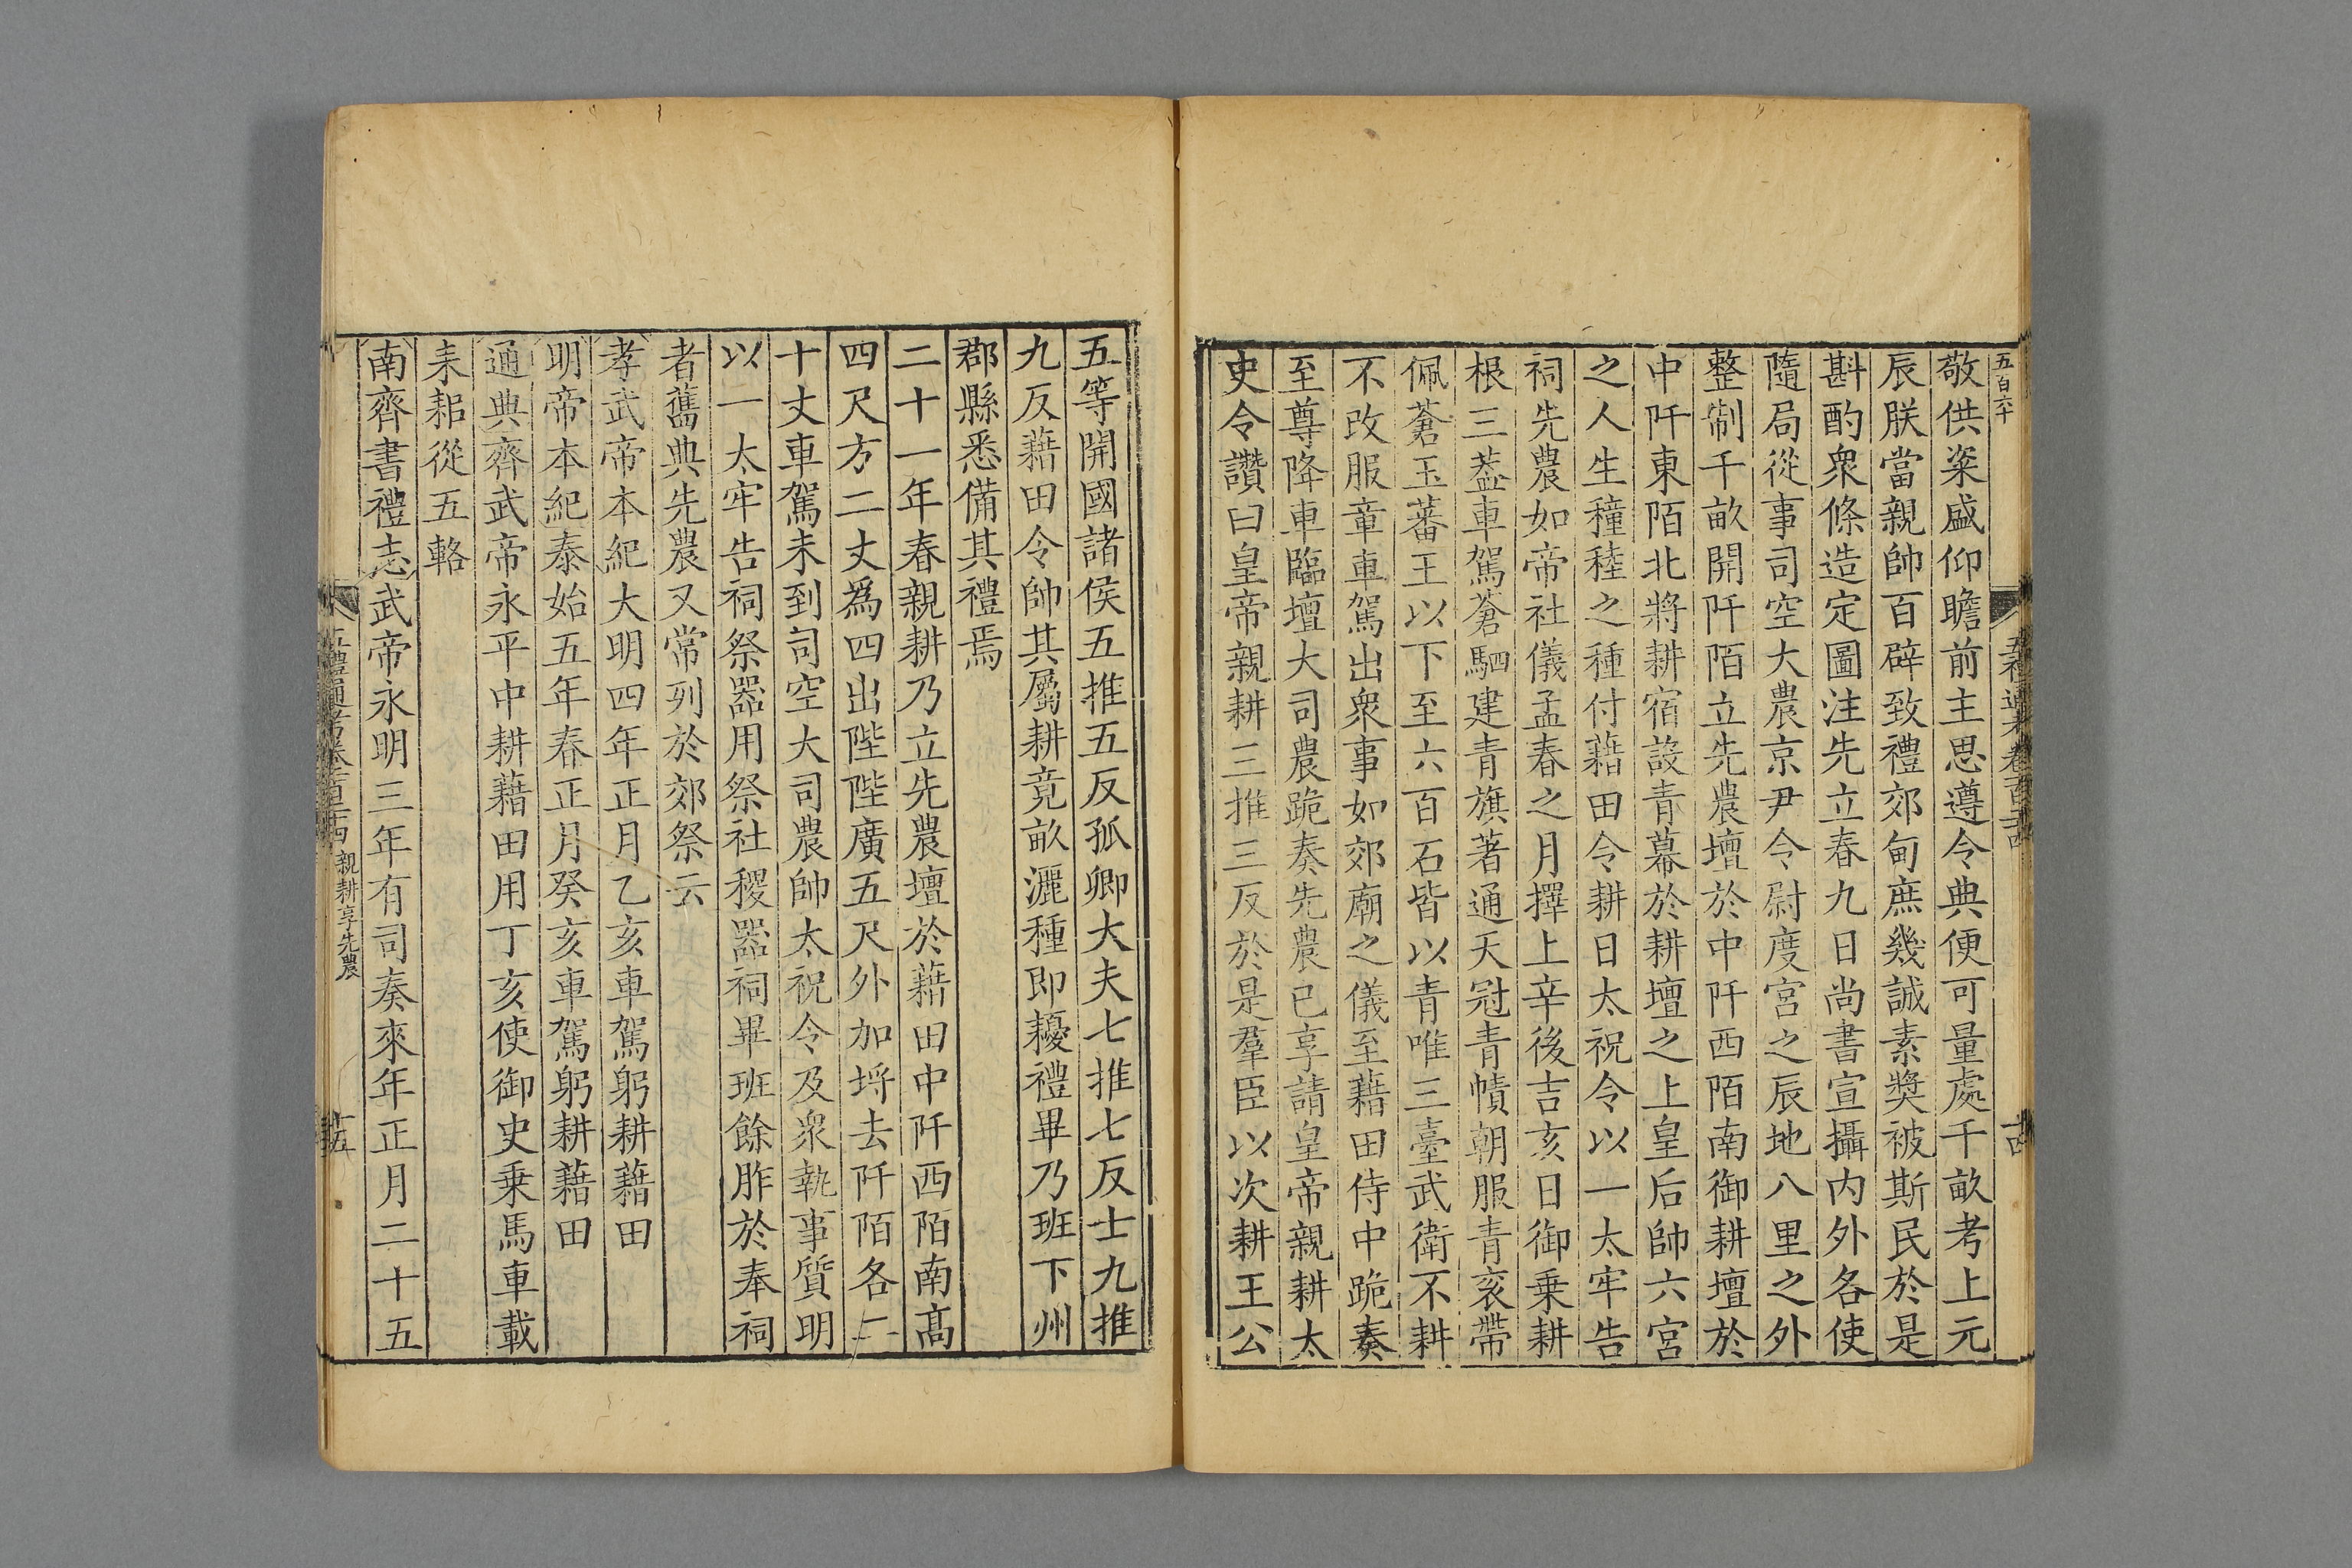 五百六十
敬供粢盛仰瞻前主思遵令典便可量處千畝考上元
辰朕當親帥百辟致禮郊甸庶幾誠素獎被斯民於是
斟酌衆條造定圖注先立春九日尚書宣攝内外各使
隨局從事司空大農京尹令尉度宮之辰地八里之外
整制千畝開阡陌立先農壇於中阡西陌南御耕壇於
中阡東陌北將耕宿設青幕於耕壇之上皇后帥六宮
之人生穜稑之種付藉田令耕日太祝令以一太牢告
祠先農如帝社儀孟春之月擇上辛後吉亥日御乗耕
根三葢車駕蒼駟建青旗著通天冠青幘朝服青衮帶
佩蒼玉蕃王以下至六百石皆以青唯三臺武衛不耕
不改服章車駕出衆事如郊廟之儀至藉田侍中跪奏
至尊降車臨壇大司農跪奏先農已享請皇帝親耕太
史令讚曰皇帝親耕三推三反於是羣臣以次耕王公
五等開國諸侯五推五反孤卿大夫七推七反士九推
九反藉田令帥其屬耕竟畝灑種即耰禮畢乃班下州
郡縣悉備其禮焉
二十一年春親耕乃立先農壇於藉田中阡西陌南髙
四尺方二丈為四出陛陛廣五尺外加埒去阡陌各二
十丈車駕未到司空大司農帥太祝令及衆執事質明
以一太牢告祠祭器用祭社稷器祠畢班餘胙於奉祠
者舊典先農又常列於郊祭云
孝武帝本紀大明四年正月乙亥車駕躬耕藉田
明帝本紀泰始五年春正月癸亥車駕躬耕藉田
通典齊武帝永平中耕藉田用丁亥使御史乗馬車載
耒耜從五輅
南齊書禮志武帝永明三年有司奏來年正月二十五
五禮通考卷一百二十四 親耕享先農 十五